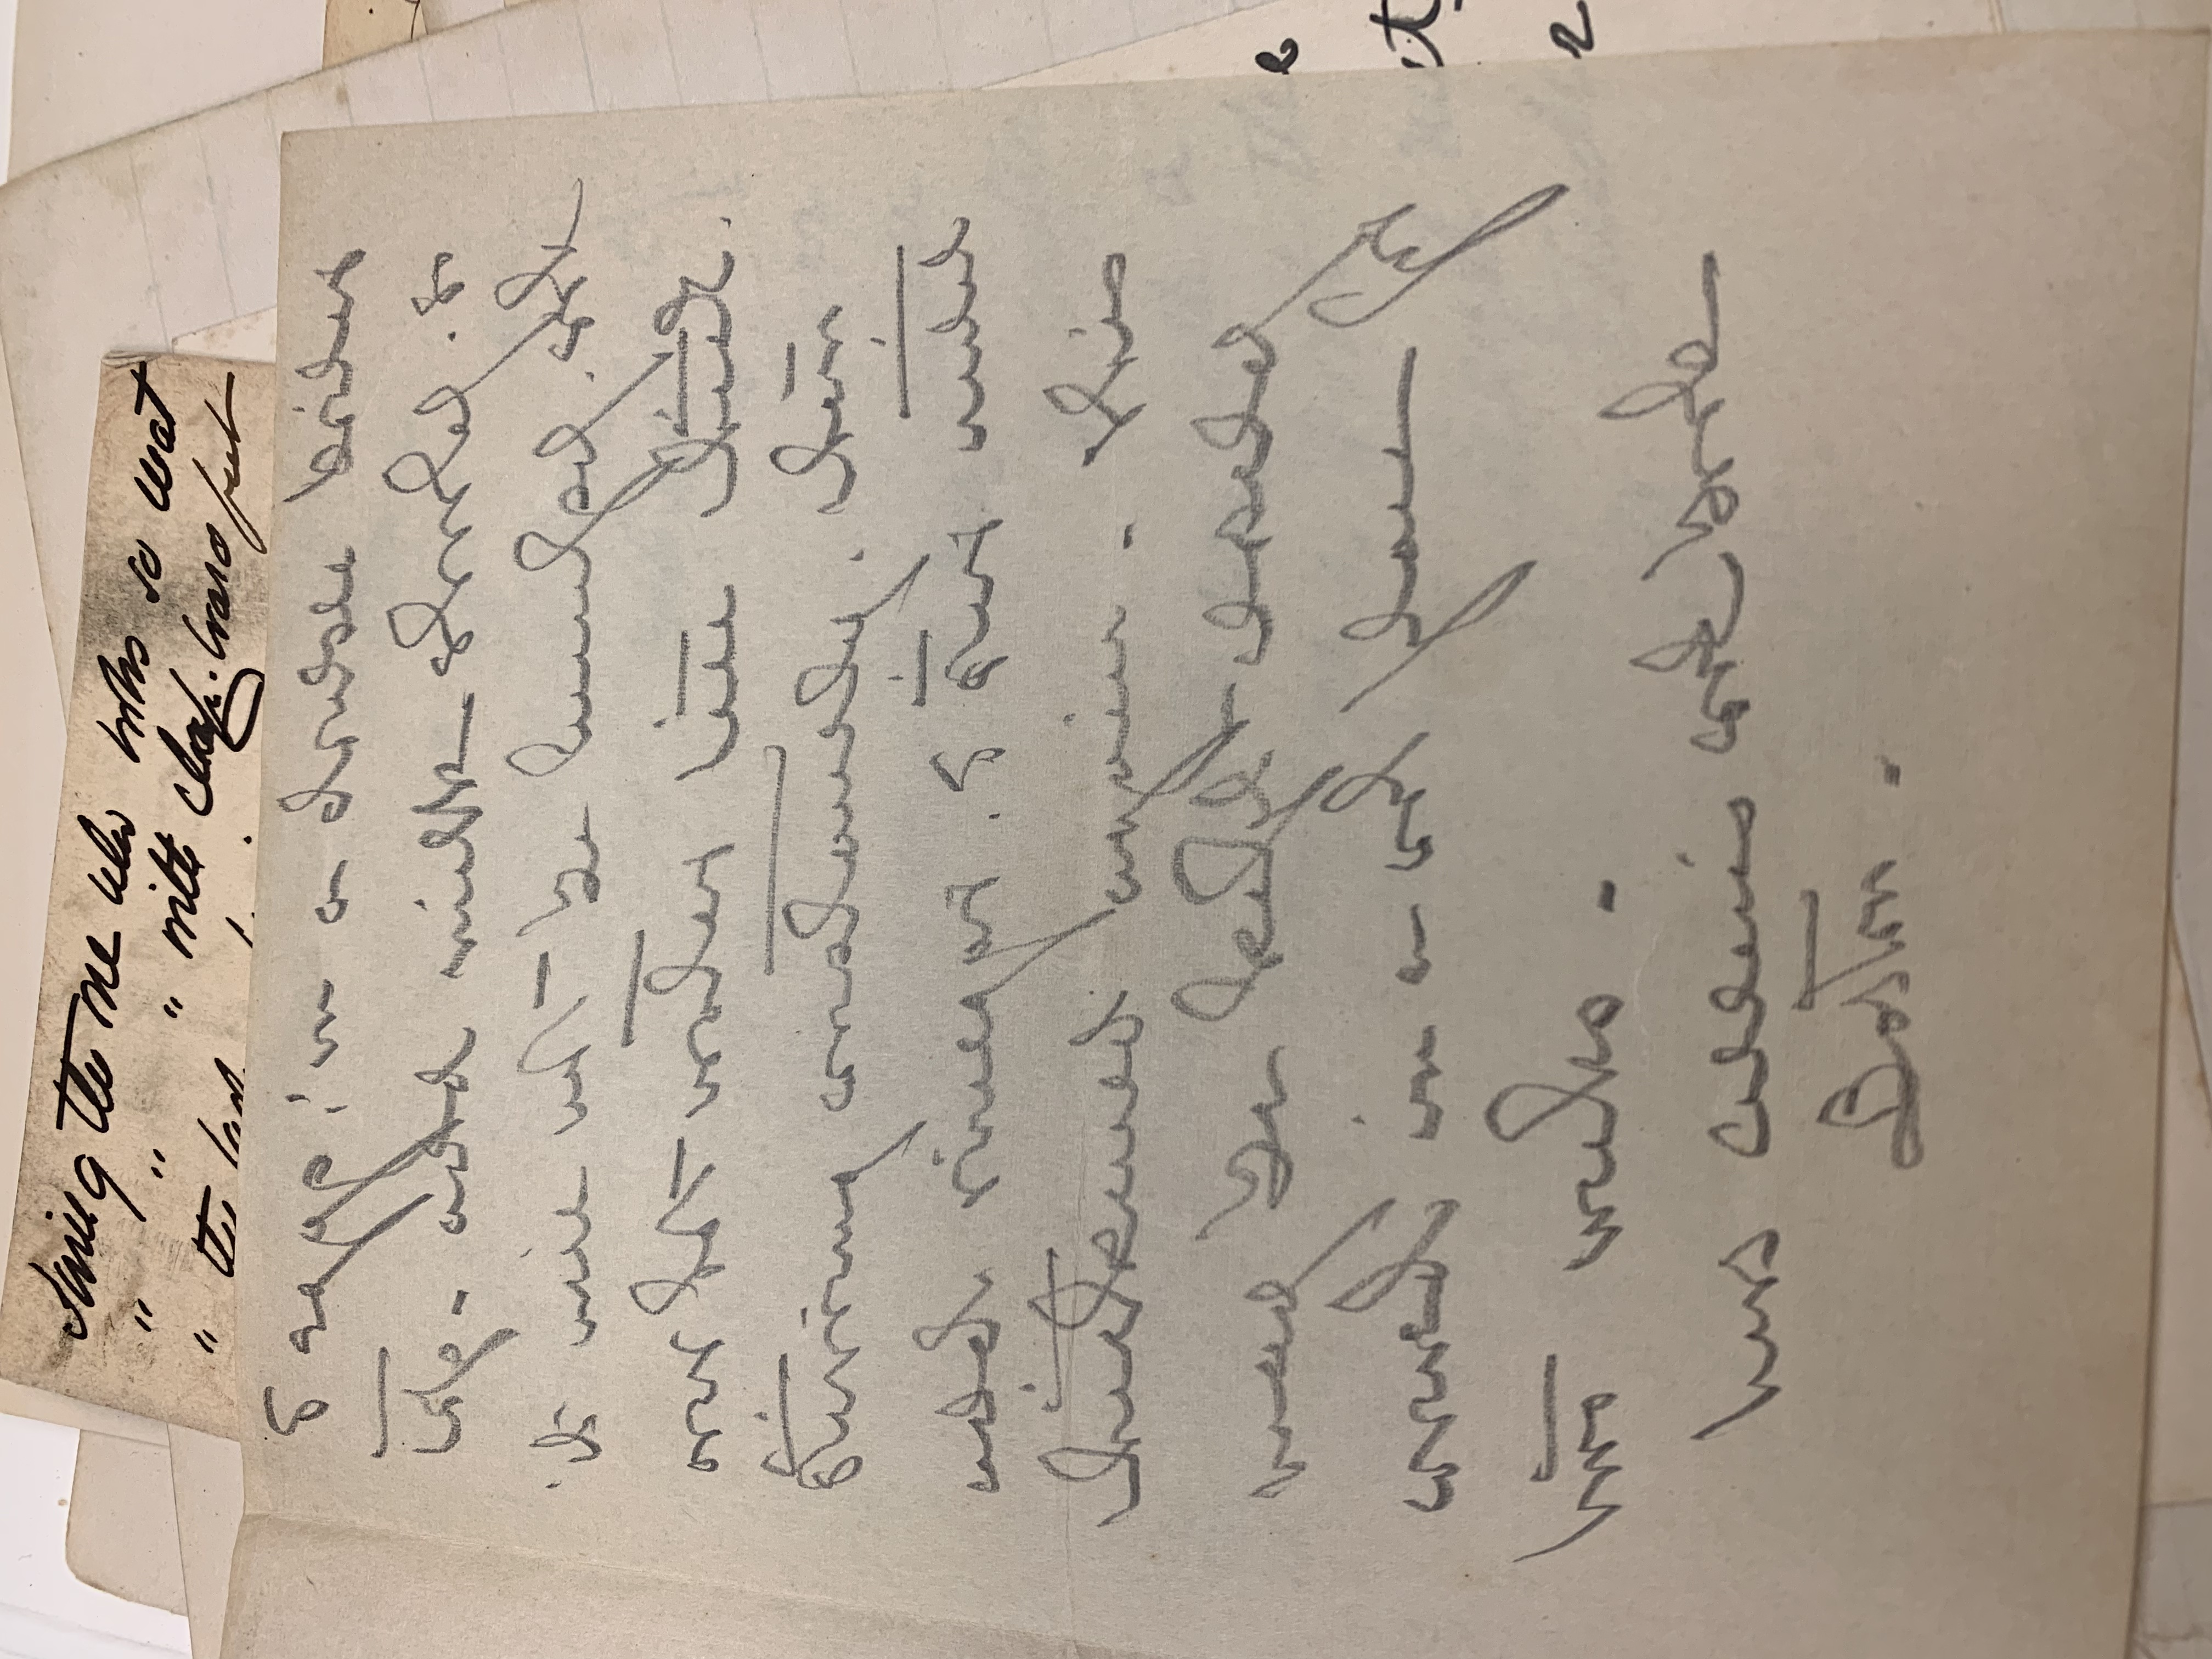 the one who looks so neat
" " " with clap-board feet
" the lady
& eggs, in a double boiler
top - add milk slowly. so
it will not be lumpy. cook
over hot water till thick.
stirring constantly. then
add vinegar. & stir until
thickened again - this
may be kept closely
covered in a cool place for
two weeks -
Mrs Allens cook book
Boston -